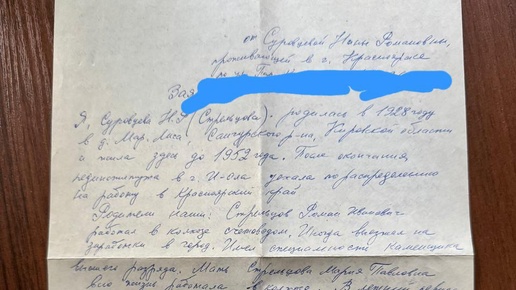 от Суровцевой Нины Романовны,
проживающей в г. Красноярске
по
Зая
Я, Суровцева Н.Р (Стрельцова). родилась в 1928 году
в д. Мар. Лиса, Санчурского р-на, Кировской области
и жила здесь до 1952 года. После окончания
пединститута в г. Й-Ола уехала по распределению
на работу в Красноярский край
Родители наши: Стрельцов Роман Иванович
работал в колхозе счетоводом. Иногда выезжал на
заработки в город. Имел специальность каменщика
высшего разряда. Мать Стрельцова Мария Павловна
всю жизнь работала в колхозе. В летний период